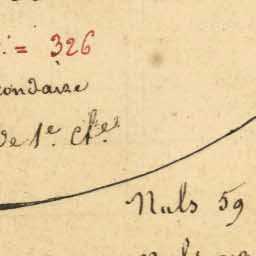 = 326
ondaire
de 1.e cl.es
Nuls 59